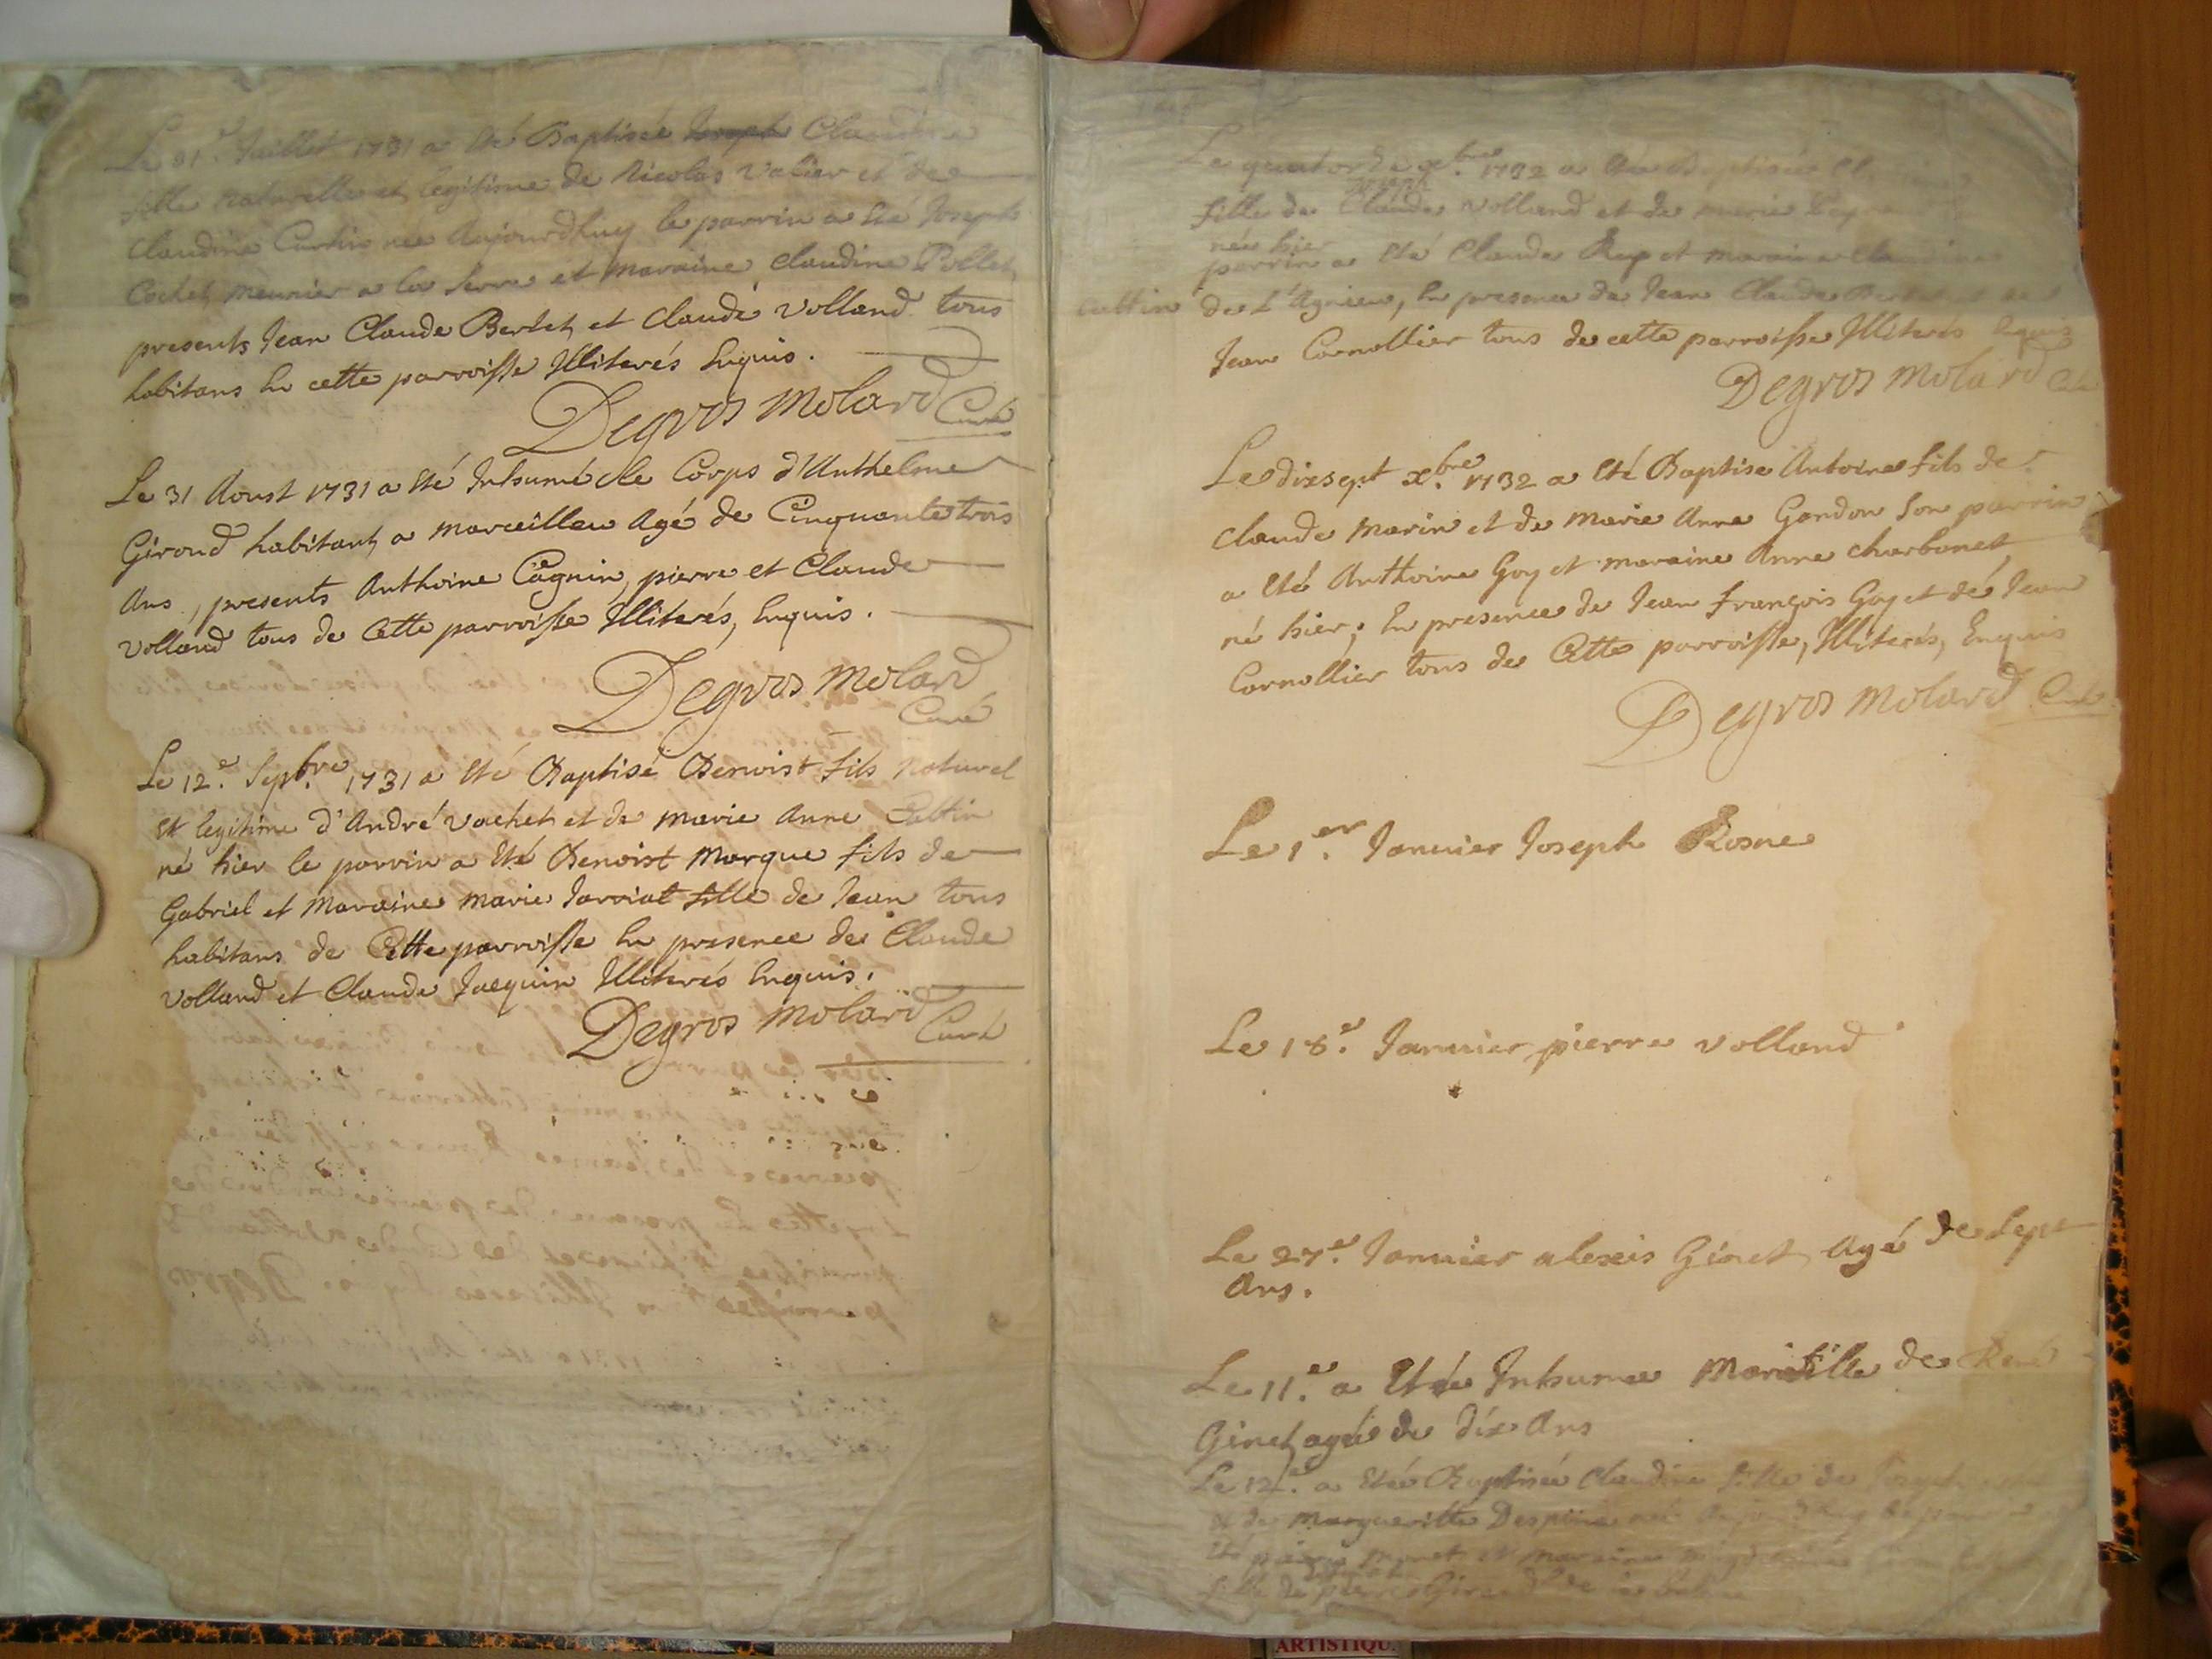 Le 31.e Juillet 1731 a été Baptisée Joseph Claudine
fille naturelle et legitime de Nicolas Valier et de
Claudine Curtin née Aujourdhuy le parrin a été Joseph
Cochet meunier a la Serre et maraine Claudine Pollet
presents Jean Claude Bertet et Claude Volland tous
habitans En cette parroisse Illiterés Enquis.
Degros Molard Curé
Le 31 Aoust 1731 a été Inhumé le Corps d'Anthelme
Giroud habitant a marceillieu Agé de Cinquante trois
Ans, presents Anthoine Cagnin, pierre et Claude
Volland tous de Cette parroisse Illiterés, Enquis.
Degros Molard
Curé
Le 12.e Sepbre. 1731 a été Baptisé Benoist fils naturel
et legitime d'André Vachet et de marie Anne Cultin
né hier le parrin a été Benoist Marque fils de
Gabriel et Maraine marie Jarriat fille de Jean tous
habitans de Cette parroisse En presence de Claude
Volland et Claude Jacquin Illiterés Enquis.
Degros Molard Curé
Le quatorze xbre. 1732 a été Baptisée
fille de Claude Volland et de marie
née hier
parrin a été Claude Rey et maraine Claudine
Cultin de L'Agnieu, En presence de Jean Claude Bertet et de
Jean Cornollier tous de cette parroisse Illiterés Enquis
Degros Molard Curé
Le dixsept xbre. 1732 a été Baptisé Antoine fils de
Claude Marin et de Marie Anne Gandon son parrin
a été Anthoine Goy et maraine Anne Charbonet
né hier; En presence de Jean François Goy et de Jean
Cornollier tous de Cette parroisse, Illiterés, Enquis
Degros Molard Curé
Le 1.er Janvier Joseph Rosne
Le 18.e Janvier pierre Volland
Le 27.e Janvier alexis Ginet Agé de Sept
Ans.
Le 11.e a été Inhumée Marie fille de René
Ginet agée de dix Ans
Le 12.e a été Baptisée Claudine fille de Joseph
et de Margueritte Despine née Aujourdhuy le parrin
été pierre et maraine
fille de pierre